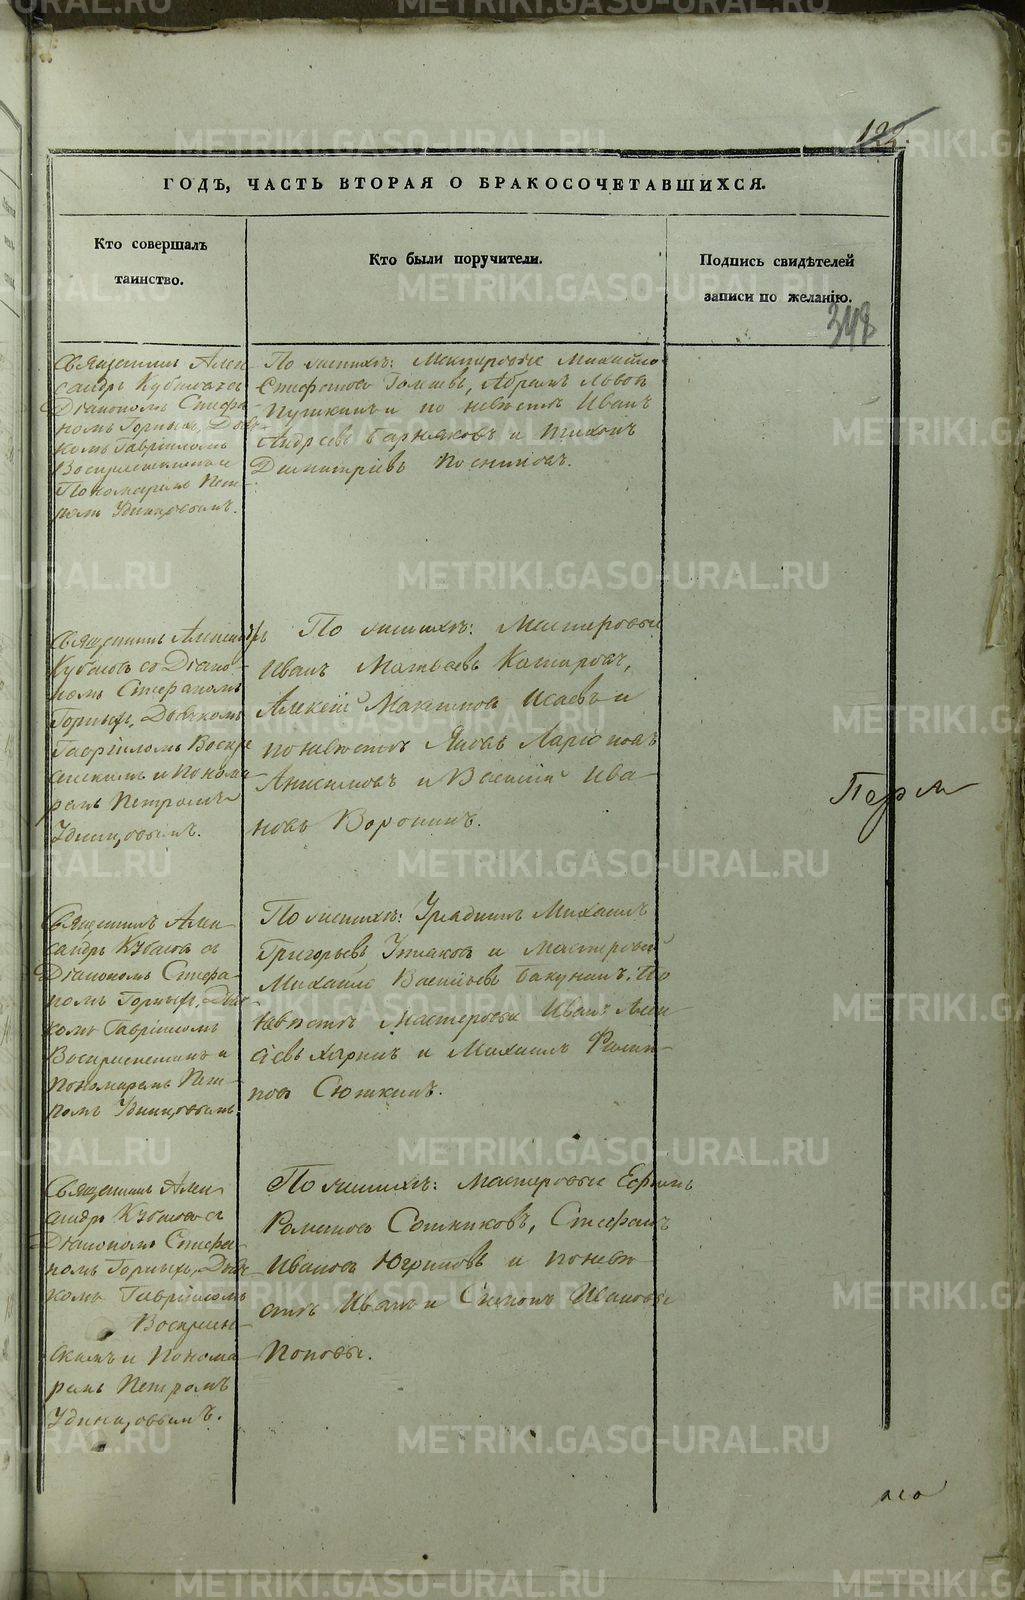 122.
ГОДЪ, ЧАСТЬ ВТОРАЯ О БРАКОСОЧЕТАВШИХСЯ.
Кто совершалъ
таинство.
Кто были поручители.
Подпись свидѣтелей
записи по желанію.
348
Священникъ Алек-
сандръ Кубасовъ съ
Діакономъ Стефа-
номъ Горныхъ, Дьяч-
комъ Гавріиломъ
Воскресенскимъ и
Пономаремъ Пет-
ромъ Удинцовымъ.
По женихѣ: Мастеровые Михайло
Стефановъ, Абрамъ Львовъ
Пушкинъ и по невѣстѣ Иванъ
Андреевъ и Тихонъ
Димитріевъ
Священникъ Александръ
Кубасовъ съ Діако-
номъ Стефаномъ
Горныхъ, Дьячкомъ
Гавріиломъ Воскре-
сенскимъ и Понома-
ремъ Петромъ
Удинцовымъ.
По женихѣ: Мастеровые
Иванъ Матвеевъ
Алексѣй Максимовъ Исаевъ и
по невѣстѣ Яковъ Ларіоновъ
Анисимовъ и Василій Ива-
новъ Воронинъ.
Священникъ Алек-
сандръ Кубасовъ съ
Діакономъ Стефа-
номъ Горныхъ, Дьяч-
комъ Гавріиломъ
Воскресенскимъ и
Пономаремъ Пет-
ромъ Удинцовымъ.
По женихѣ: Урядникъ Михаилъ
Григорьевъ и мастеровой
Михайло Васильевъ Бакунинъ. По
невѣстѣ Мастеровые Иванъ Алек-
сѣевъ и Михаилъ Филип-
повъ Сюткинъ.
Священникъ Алек-
сандръ Кубасовъ съ
Діакономъ Стефа-
номъ Горныхъ, Дьяч-
комъ Гавріиломъ
Воскресен-
скимъ и Понома-
ремъ Петромъ
Удинцовымъ.
По женихѣ: Мастеровые Ефимъ
Романовъ Сотниковъ, Стефанъ
Ивановъ Югриновъ и по невѣ-
стѣ Иванъ и Симонъ Ивановы
Поповы.
METRIKI.GASO-URAL.RU